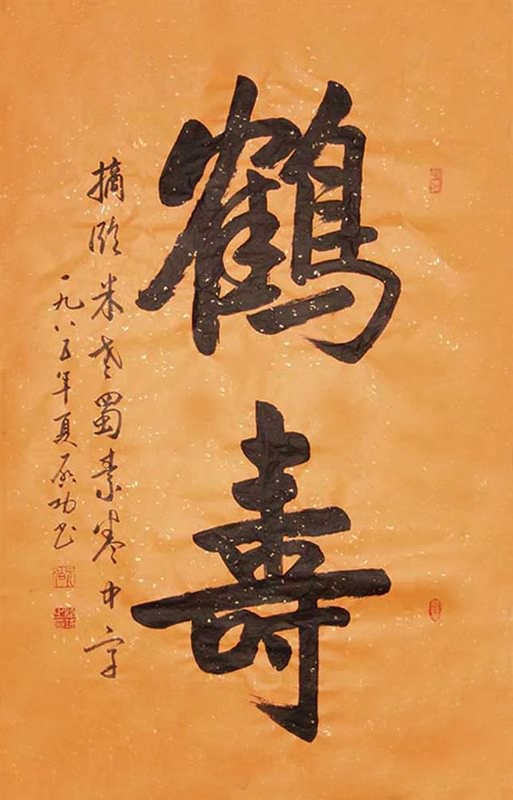 鶴壽
摘臨米老蜀素卷中字
一九八五年夏启功书